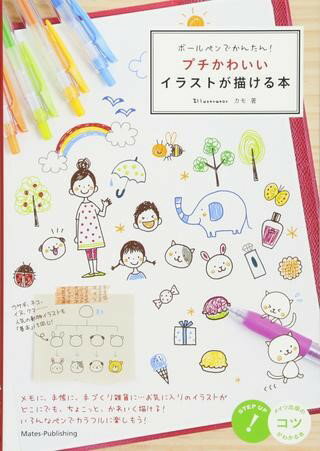 ボールペンでかんたん！
プチかわいい
イラストが描ける本
Illustrator カモ 著
ウサギ、ネコ、
イヌ、クマ…
人気の動物イラストも
「基本」は同じ！
メモに、手帳に、手づくり雑貨に…お気に入りのイラストが
どこにでも、ちょこっと、かわいく描ける！
いろんなペンでカラフルに楽しもう！
Mates-Publishing
STEP UP
!
メイツ出版の
コツ
がわかる本